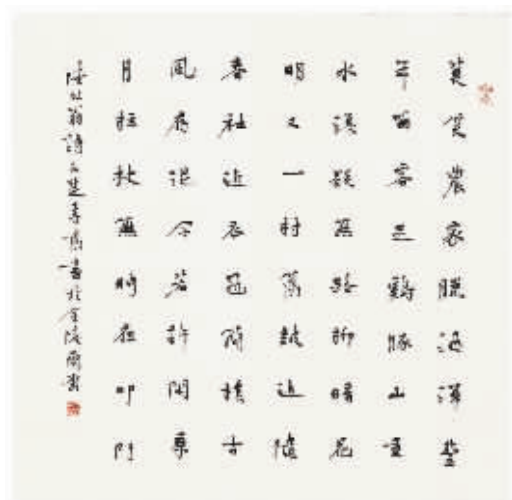 莫笑農家臘酒渾豐
年留客足鷄豚山重
水複疑無路柳暗花
明又一村簫鼓追隨
春社近衣冠簡樸古
風存從今若許閒乘
月拄杖無時夜叩門
陸放翁詩書於金陵